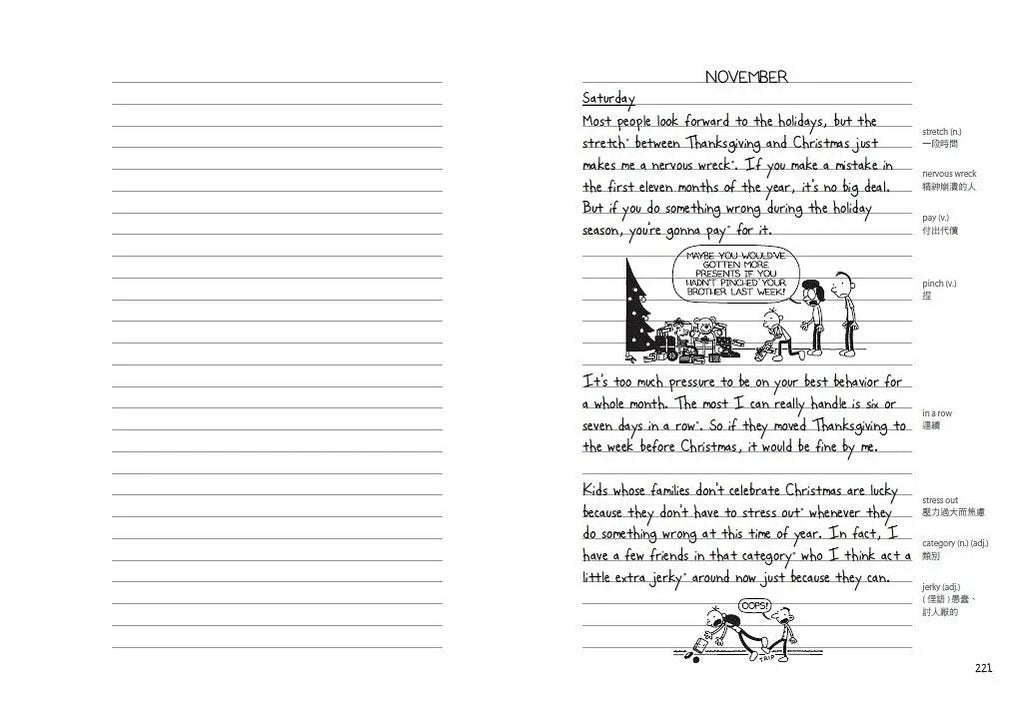 NOVEMBER
Saturday
Most people look forward to the holidays, but the
stretch* between Thanksgiving and Christmas just
makes me a nervous wreck*. If you make a mistake in
the first eleven months of the year, it's no big deal.
But if you do something wrong during the holiday
season, you're gonna pay* for it.
MAYBE YOU WOULD'VE
GOTTEN MORE
PRESENTS IF YOU
HADN'T PINCHED* YOUR
BROTHER LAST WEEK!
It's too much pressure to be on your best behavior for
a whole month. The most I can really handle is six or
seven days in a row*. So if they moved Thanksgiving to
the week before Christmas, it would be fine by me.
Kids whose families don't celebrate Christmas are lucky
because they don't have to stress out* whenever they
do something wrong at this time of year. In fact, I
have a few friends in that category* who I think act a
little extra jerky* around now just because they can.
OOPS!
TRIP
stretch (n.)
一段時間
nervous wreck
精神崩潰的人
pay (v.)
付出代價
pinch (v.)
捏
in a row
連續
stress out
壓力過大而焦慮
category (n.) (adj.)
類別
jerky (adj.)
( 俚語 ) 愚蠢、
討人厭的
221